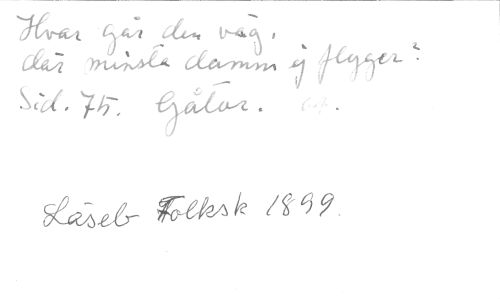 Hvar går den väg,
där minsta damm ej flyger?
Sid. 75. Gåtor.
Läseb Folksk 1899.